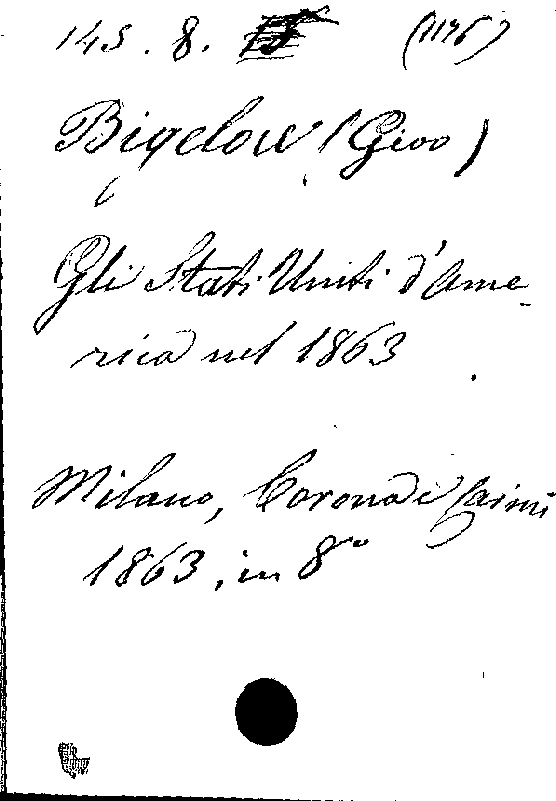 145. 8. (1196)
Bigelow (Giov)
Gli Stati Uniti d'Ame-
rica nel 1863
Milano, Corona e
1863, in 8°